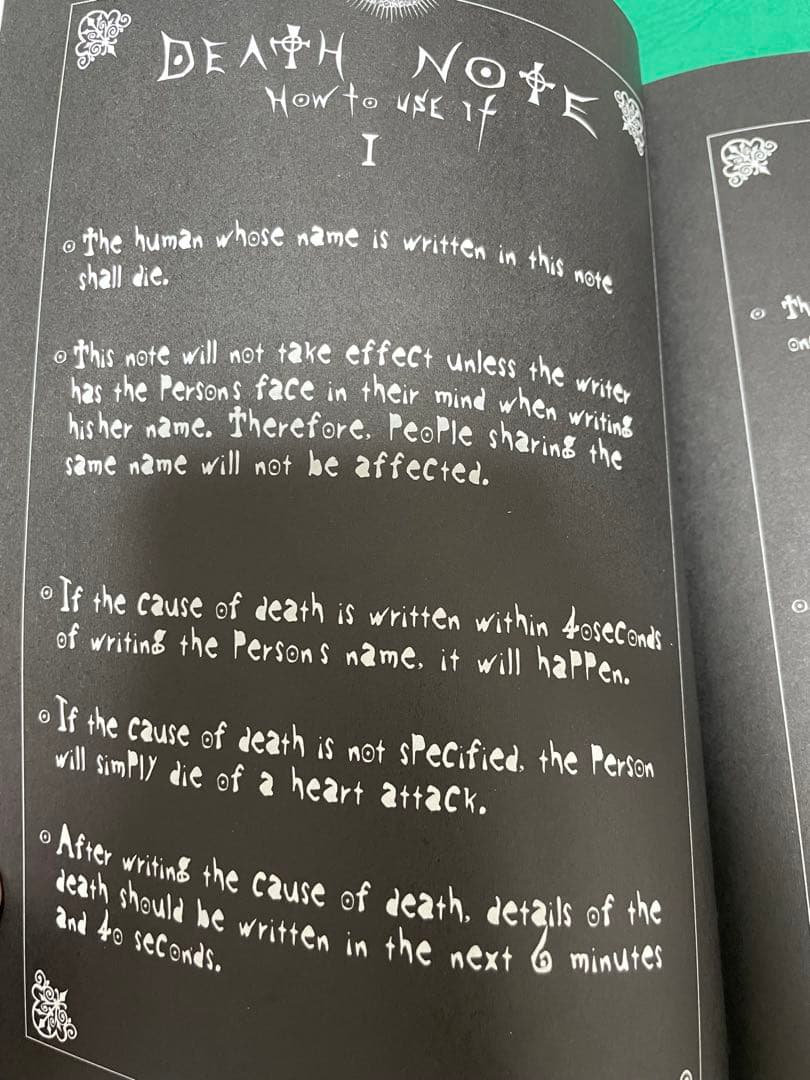 DEATH NOTE
HOW to USE it
I
The human whose name is written in this note
shall die.
This note will not take effect unless the writer
has the Persons face in their mind when writing
his her name. Therefore, PeoPle sharing the
same name will not be affected.
If the cause of death is written within 40seconds
of writing the Persons name, it will haPPen.
If the cause of death is not sPecified, the Person
will simPly die of a heart attack.
After writing the cause of death, details of the
death should be written in the next 6 minutes
and 40 seconds.
Th